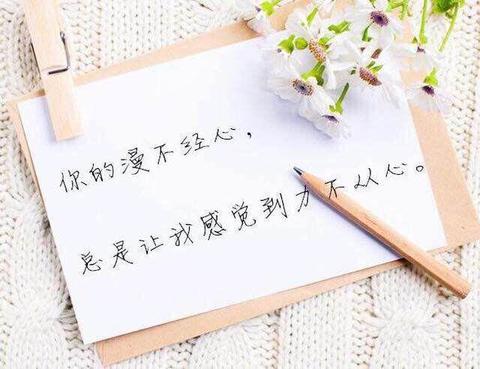 你的漫不经心，
总是让我感觉到力不从心。